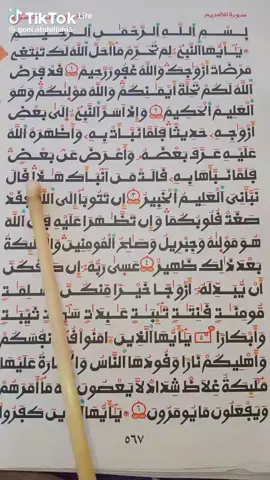 TikTok
@goni.abdullahi5
سورة التحريم
بسم الله الرحمن الرحيم
يأيها النبيء لم تحرم ما أحل الله لك تبتغي
مرضات أزوجك والله غفور رحيم ١ قد فرض
الله لكم تحلة أيمنكم والله موليكم وهو
العليم الحكيم ٢ وإذ أسر النبيء إلى بعض
أزوجه حديثا فلما نبأت به وأظهره الله
عليه عرف بعضه وأعرض عن بعض
فلما نبأها به قالت من أنبأك هذا قال
نبأني العليم الخبير ٣ إن تتوبا إلى الله فقد
صغت قلوبكما وإن تظهرا عليه فإن الله
هو موليه وجبريل وصلح المومنين والمليكة
بعد ذلك ظهير ٤ عسى ربه إن طلقكن
أن يبدله أزوجا خيرا منكن مسلمت
مومنت قنتت تيبت عبدت سيحت ثيبت
وأبكارا ٥ يأيها الذين امنوا قوا أنفسكم
وأهليكم نارا وقودها الناس والحجارة عليها
مليكة غلاظ شداد لا يعصون الله ما أمرهم
ويفعلون ما يومرون ٦ يأيها الذين كفروا
٥٦٧